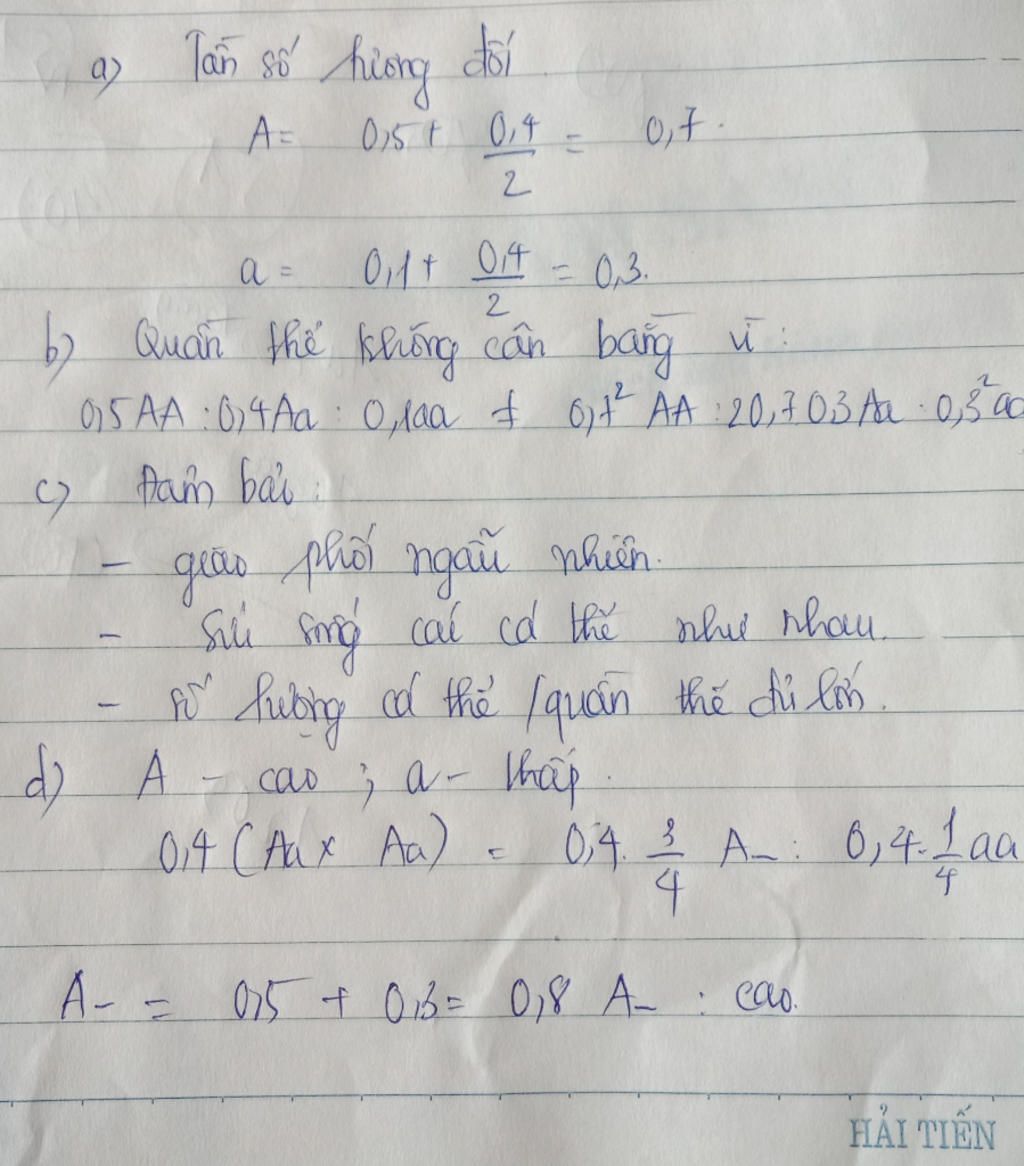 a) Tần số tương đối
A = 0,5 + 0,4/2 = 0,7.
a = 0,1 + 0,4/2 = 0,3.
b) Quần thể không cân bằng vì :
0,5AA : 0,4Aa : 0,1aa ≠ 0,7² AA : 2 0,7 0,3 Aa : 0,3² aa
c) Đảm bảo :
- giao phối ngẫu nhiên.
- Sức sống các cá thể như nhau.
- số lượng cá thể / quần thể đủ lớn.
d) A - cao ; a - thấp.
0,4 (Aa x Aa) = 0,4. 3/4 A- : 0,4. 1/4 aa
A- = 0,5 + 0,3 = 0,8 A- : cao.
HẢI TIẾN